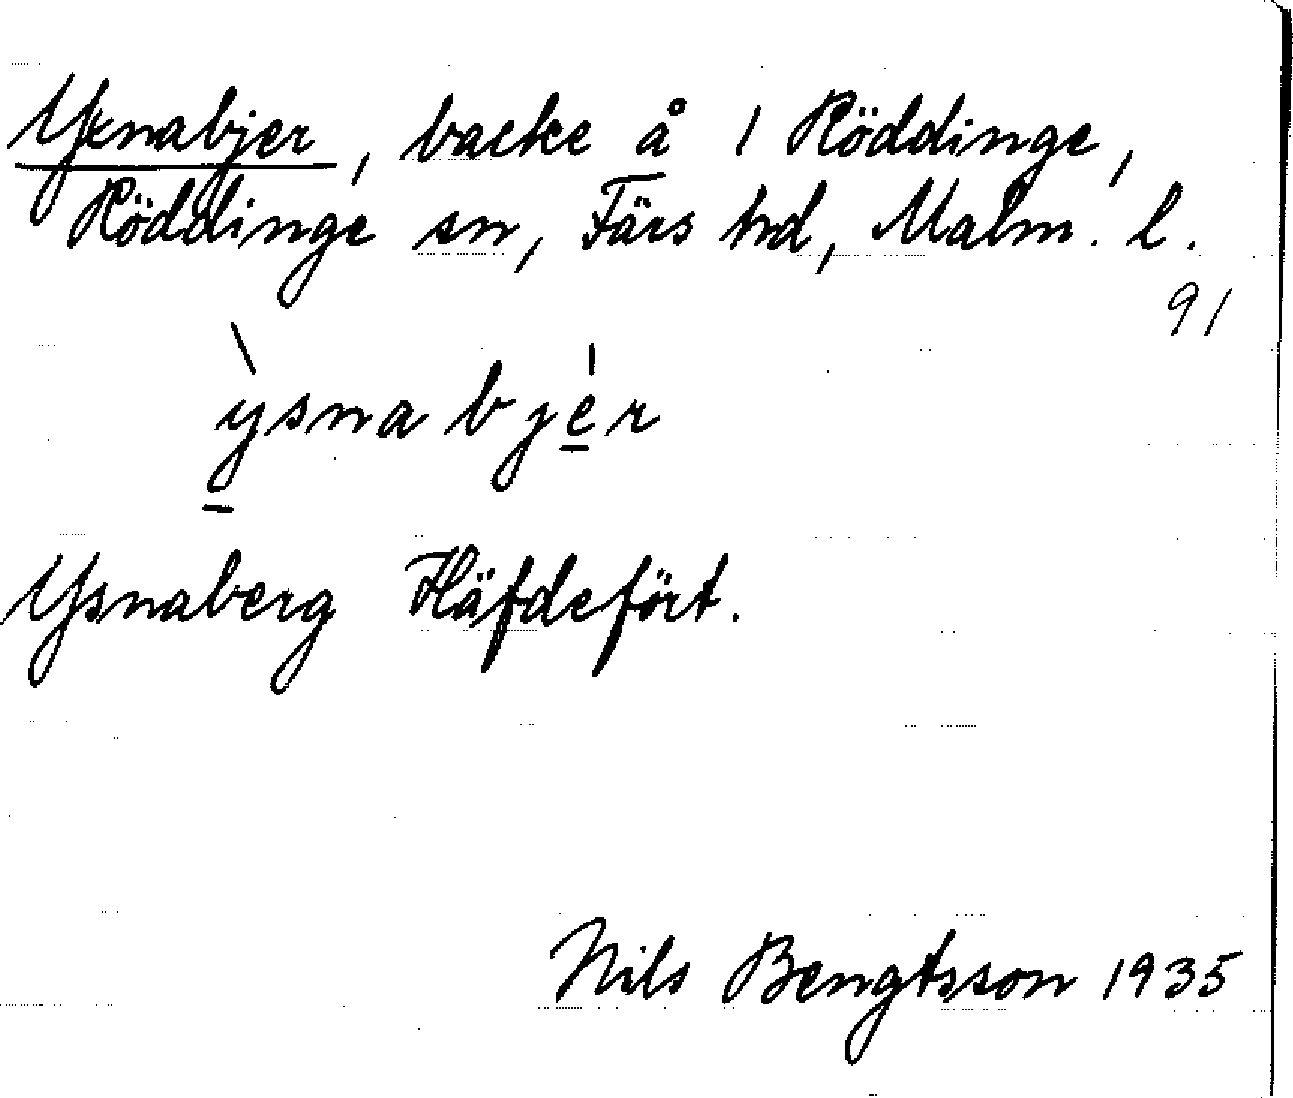 Yxnabjer, backe å 1 Röddinge,
Röddinge sn, Färs hd, Malm. l.
91
ysnabjer
Ysnaberg Häfdefört.
Nils Bengtsson 1935